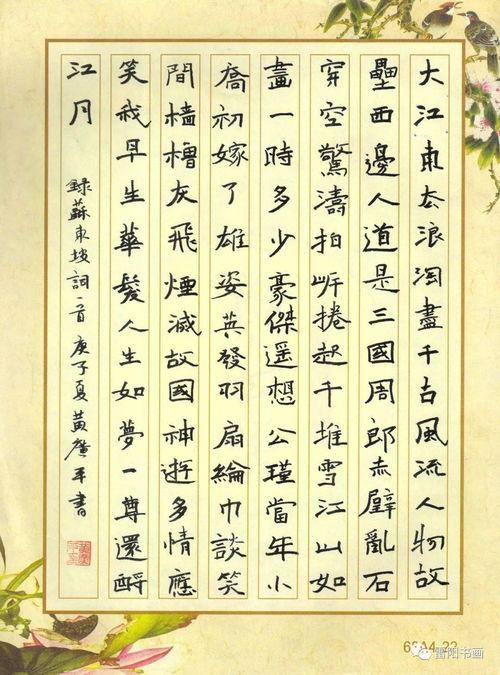 大江東去浪淘盡千古風流人物故
壘西邊人道是三國周郎赤壁亂石
穿空驚濤拍岸捲起千堆雪江山如
畫一時多少豪傑遥想公瑾當年小
喬初嫁了雄姿英發羽扇綸巾談笑
間檣櫓灰飛煙滅故國神遊多情應
笑我早生華髮人生如夢一尊還酹
江月
錄蘇東坡詞一首庚子夏黃廣平書
雷阳书画